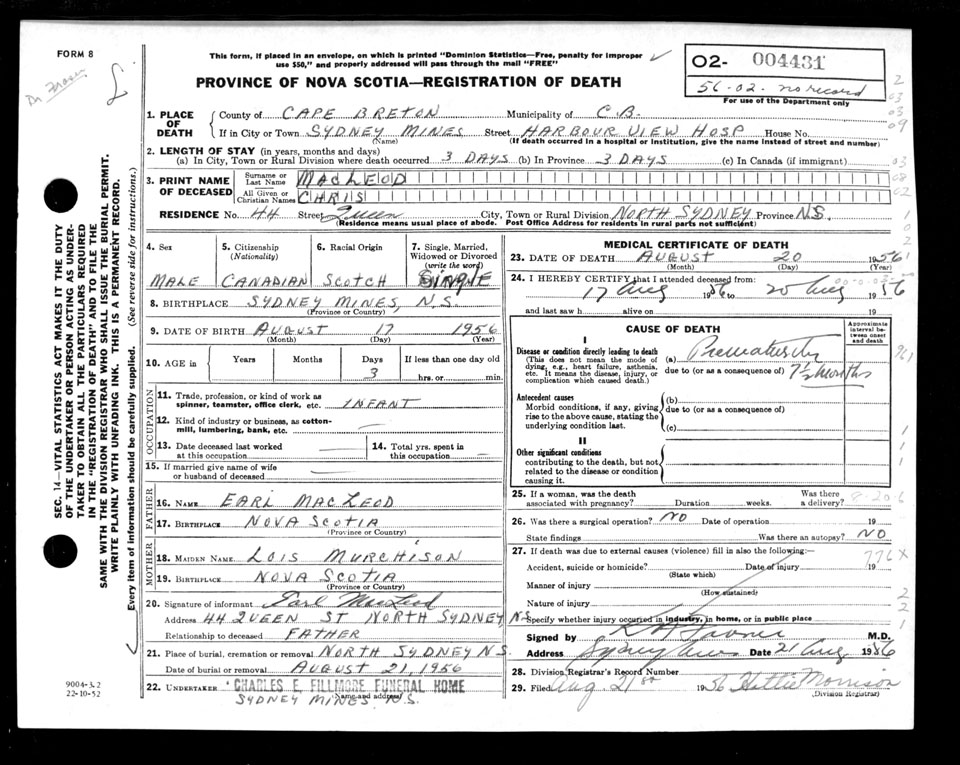 FORM 8
Dr Fraser
This form, if placed in an envelope, on which is printed "Dominion Statistics—Free, penalty for improper
use $50," and properly addressed will pass through the mail "FREE"
PROVINCE OF NOVA SCOTIA—REGISTRATION OF DEATH
02- 004431
56-02. no record
For use of the Department only
1. PLACE OF DEATH
County of CAPE BRETON Municipality of C.B.
If in City or Town SYDNEY MINES Street HARBOUR VIEW HOSP House No.
(Name) (If death occurred in a hospital or institution, give the name instead of street and number)
2. LENGTH OF STAY (in years, months and days)
(a) In City, Town or Rural Division where death occurred 3 DAYS (b) In Province 3 DAYS (c) In Canada (if immigrant)
3. PRINT NAME OF DECEASED
Surname or Last Name MACLEOD
All Given or Christian Names CHRIS
RESIDENCE No. 44 Street Queen City, Town or Rural Division NORTH SYDNEY Province N.S.
(Residence means usual place of abode. Post Office Address for residents in rural parts not sufficient)
4. Sex 5. Citizenship (Nationality) 6. Racial Origin 7. Single, Married, Widowed or Divorced (write the word)
MALE CANADIAN SCOTCH SINGLE
8. BIRTHPLACE SYDNEY MINES, N.S.
(Province or Country)
9. DATE OF BIRTH AUGUST 17 1956
(Month) (Day) (Year)
10. AGE in Years Months Days If less than one day old
3 hrs. or min.
OCCUPATION
11. Trade, profession, or kind of work as spinner, teamster, office clerk, etc. INFANT
12. Kind of industry or business, as cotton-mill, lumbering, bank, etc.
13. Date deceased last worked at this occupation 14. Total yrs. spent in this occupation
15. If married give name of wife or husband of deceased
FATHER
16. NAME EARL MACLEOD
17. BIRTHPLACE NOVA SCOTIA
(Province or Country)
MOTHER
18. MAIDEN NAME LOIS MURCHISON
19. BIRTHPLACE NOVA SCOTIA
(Province or Country)
20. Signature of informant Earl MacLeod
Address 44 QUEEN ST NORTH SYDNEY N.S.
Relationship to deceased FATHER
21. Place of burial, cremation or removal NORTH SYDNEY N.S.
Date of burial or removal AUGUST 21, 1956
22. UNDERTAKER CHARLES E. FILLMORE FUNERAL HOME
(Name and address)
SYDNEY MINES N.S.
MEDICAL CERTIFICATE OF DEATH
23. DATE OF DEATH AUGUST 20 1956
(Month) (Day) (Year)
24. I HEREBY CERTIFY that I attended deceased from:
17 Aug 1956 to 20 Aug 1956
and last saw h alive on 19
CAUSE OF DEATH
Approximate interval between onset and death
I
Disease or condition directly leading to death (a) Prematurity
(This does not mean the mode of dying, e.g., heart failure, asthenia, etc. It means the disease, injury, or complication which caused death.)
due to (or as a consequence of) 7½ months
Antecedent causes (b)
Morbid conditions, if any, giving rise to the above cause, stating the underlying condition last.
due to (or as a consequence of)
(c)
II
Other significant conditions
contributing to the death, but not related to the disease or condition causing it.
25. If a woman, was the death associated with pregnancy? Duration weeks. Was there a delivery?
26. Was there a surgical operation? NO Date of operation 19
State findings Was there an autopsy? NO
27. If death was due to external causes (violence) fill in also the following:—
Accident, suicide or homicide? Date of injury 19
(State which)
Manner of injury
(How sustained)
Nature of injury
Specify whether injury occurred in industry, in home, or in public place
Signed by M.D.
Address Sydney Mines Date 21 Aug 1956
28. Division Registrar's Record Number
29. Filed Aug 21st 1956 Hattie Morrison
(Division Registrar)
SEC. 14—VITAL STATISTICS ACT MAKES IT THE DUTY
OF THE UNDERTAKER OR PERSON ACTING AS UNDER-
TAKER TO OBTAIN ALL THE PARTICULARS REQUIRED
IN THE "REGISTRATION OF DEATH" AND TO FILE THE
SAME WITH THE DIVISION REGISTRAR WHO SHALL ISSUE THE BURIAL PERMIT.
WRITE PLAINLY WITH UNFADING INK. THIS IS A PERMANENT RECORD.
Every item of information should be carefully supplied. (See reverse side for instructions.)
9004-3.2
22-10-52
2
03
03
09
03
08
02
1
0
2
961
1
1
1
8-20-6
776X
2
2
1